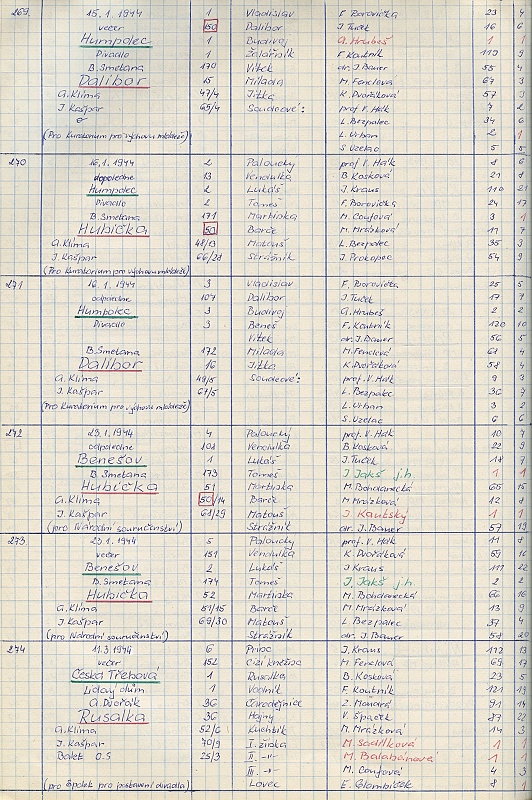 269 15.1.1944 1 Vladislav F. Borovička 23 4
večer 150 Dalibor J. Tuček 16 6
Humpolec 1 Budivoj G. Hrubeš 1 1
Divadlo 1 Žalářník F. Koutník 119 9
B. Smetana 170 Vítek dr. J. Bauer 55 4
Dalibor 15 Milada M. Fenclová 67 3
A. Klíma 47/4 Jitka K. Dvořáková 57 3
J. Kašpar 65/4 Soudcové: prof. V. Hálk 7
L. Bezpalec 34 6
(Pro Kuratorium pro výchovu mládeže) L. Urban 2 1
S. Vzelac 5 5
270 16.1.1944 2 Paloucký prof. V. Hálk 8
dopoledne 13 Vendulka B. Kosková 21 8
Humpolec 2 Lukáš J. Kraus 110 21
Divadlo 2 Tomeš F. Borovička 24 17
B. Smetana 171 Martinka M. Coufová 3 1
Hubička 50 Barče M. Mrázková 11 7
A. Klíma 48/13 Matouš L. Bezpalec 35 3
J. Kašpar 66/28 Strážník J. Prokopec 54 9
(Pro Kuratorium pro výchovu mládeže)
271 16.1.1944 3 Vladislav F. Borovička 25 5
odpoledne 107 Dalibor J. Tuček 17
Humpolec 3 Budivoj G. Hrubeš 2 2
Divadlo 3 Beneš F. Koutník 120 10
Vítek dr. J. Bauer 56 5
B. Smetana 172 Milada M. Fenclová 68 4
Dalibor 16 Jitka K. Dvořáková 58 4
A. Klíma 49/5 Soudcové: prof. V. Hálk 9 3
J. Kašpar 67/5 L. Bezpalec 36 7
(Pro Kuratorium pro výchovu mládeže) L. Urban 3 2
S. Vzelac 6 6
272 23.1.1944 4 Paloucký prof. V. Hálk 10 7
odpoledne 108 Vendulka B. Kosková 22 9
Benešov 1 Lukáš J. Tuček 18 7
B. Smetana 173 Tomeš J. Jakš j.h. 1 1
Hubička 51 Martinka M. Bohdanecká 65 15
A. Klíma 50/14 Barče M. Mrázková 12 8
J. Kašpar 68/29 Matouš J. Kautský 1 1
(pro Národní souručenství) Strážník dr. J. Bauer 57 19
273 23.1.1944 5 Paloucký prof. V. Hálk 11 8
večer 151 Vendulka K. Dvořáková 59 16
Benešov 2 Lukáš J. Kraus 111 22
B. Smetana 174 Tomeš J. Jakš j.h. 2
Hubička 52 Martinka M. Bohdanecká 66 16
A. Klíma 51/15 Barče M. Mrázková 13 9
J. Kašpar 69/30 Matouš L. Bezpalec 37 4
(pro Národní souručenství) Strážník dr. J. Bauer 58 20
274 11.3.1944 6 Princ J. Kraus 112 13
večer 152 Cizí kněžna M. Fenclová 69 17
Česká Třebová 1 Rusalka B. Kosková 23 5
Lidový dům 1 Vodník F. Koutník 121 13
A. Dvořák 36 Čarodějnice Z. Mandra 91 14
Rusalka 36 Hajný V. Špaček 87 22
A. Klíma 52/6 Kuchtík M. Mrázková 14 3
J. Kašpar 70/9 I. žínka M. Sadílková 1 1
Balet O.S 25/3 II. -"- M. Balabánová 1 1
III. -"- M. Coufová 4
(pro Spolek pro postavení divadla) Lovec E. Golombíček 8